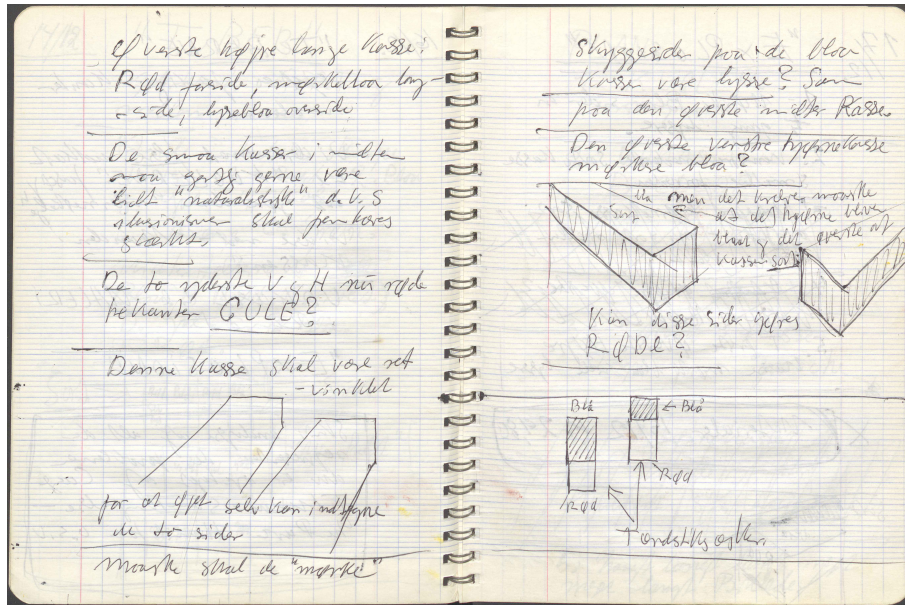 Øverste højre lange Kasse:
Rød forside, mørkeblaa lang-
side, lyseblaa overside
De smaa Kasser i midten
maa gerne være
lidt "naturalistiske" d.v.s
skal
stærkt.
De to yderste V og H
trekanter GULE?
Denne Kasse skal være ret
-vinklet
for at øjet selv kan indtegne
de to sider
Maaske skal de "mørke"
Skyggesider paa de blaa
Kasser være lysse? Som
paa den øverste midter Kasse
Den øverste venstre hjørnekasse
mørkere blaa?
men det kræver maaske
at det hjørne bliver
blaat og det øverste af
Kassen sort
sort
Kan disse sider gøres
RØDE?
Blå
← Blå
Rød
Rød
Tændstiksæsker